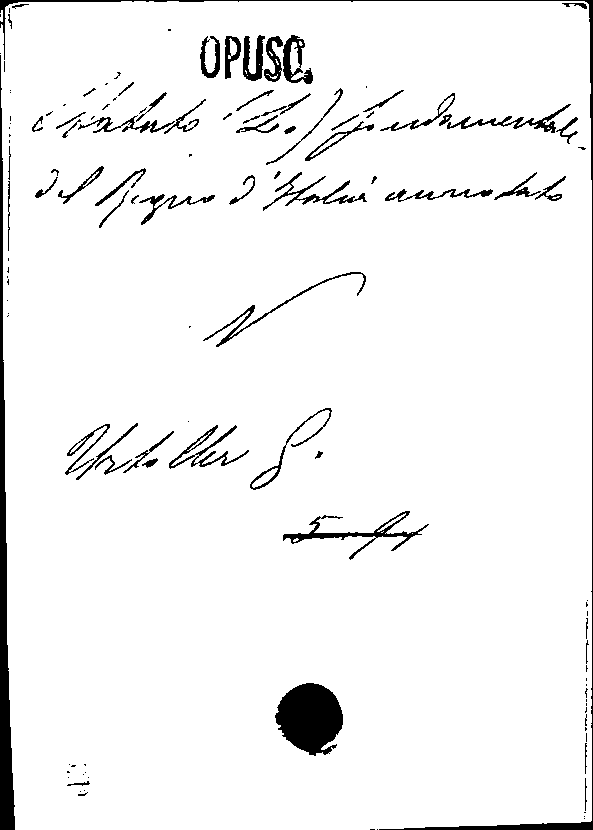 OPUSC.
Statuto (Lo) fondamentale
del Regno d'Italia annotato
V
Urtoller G.